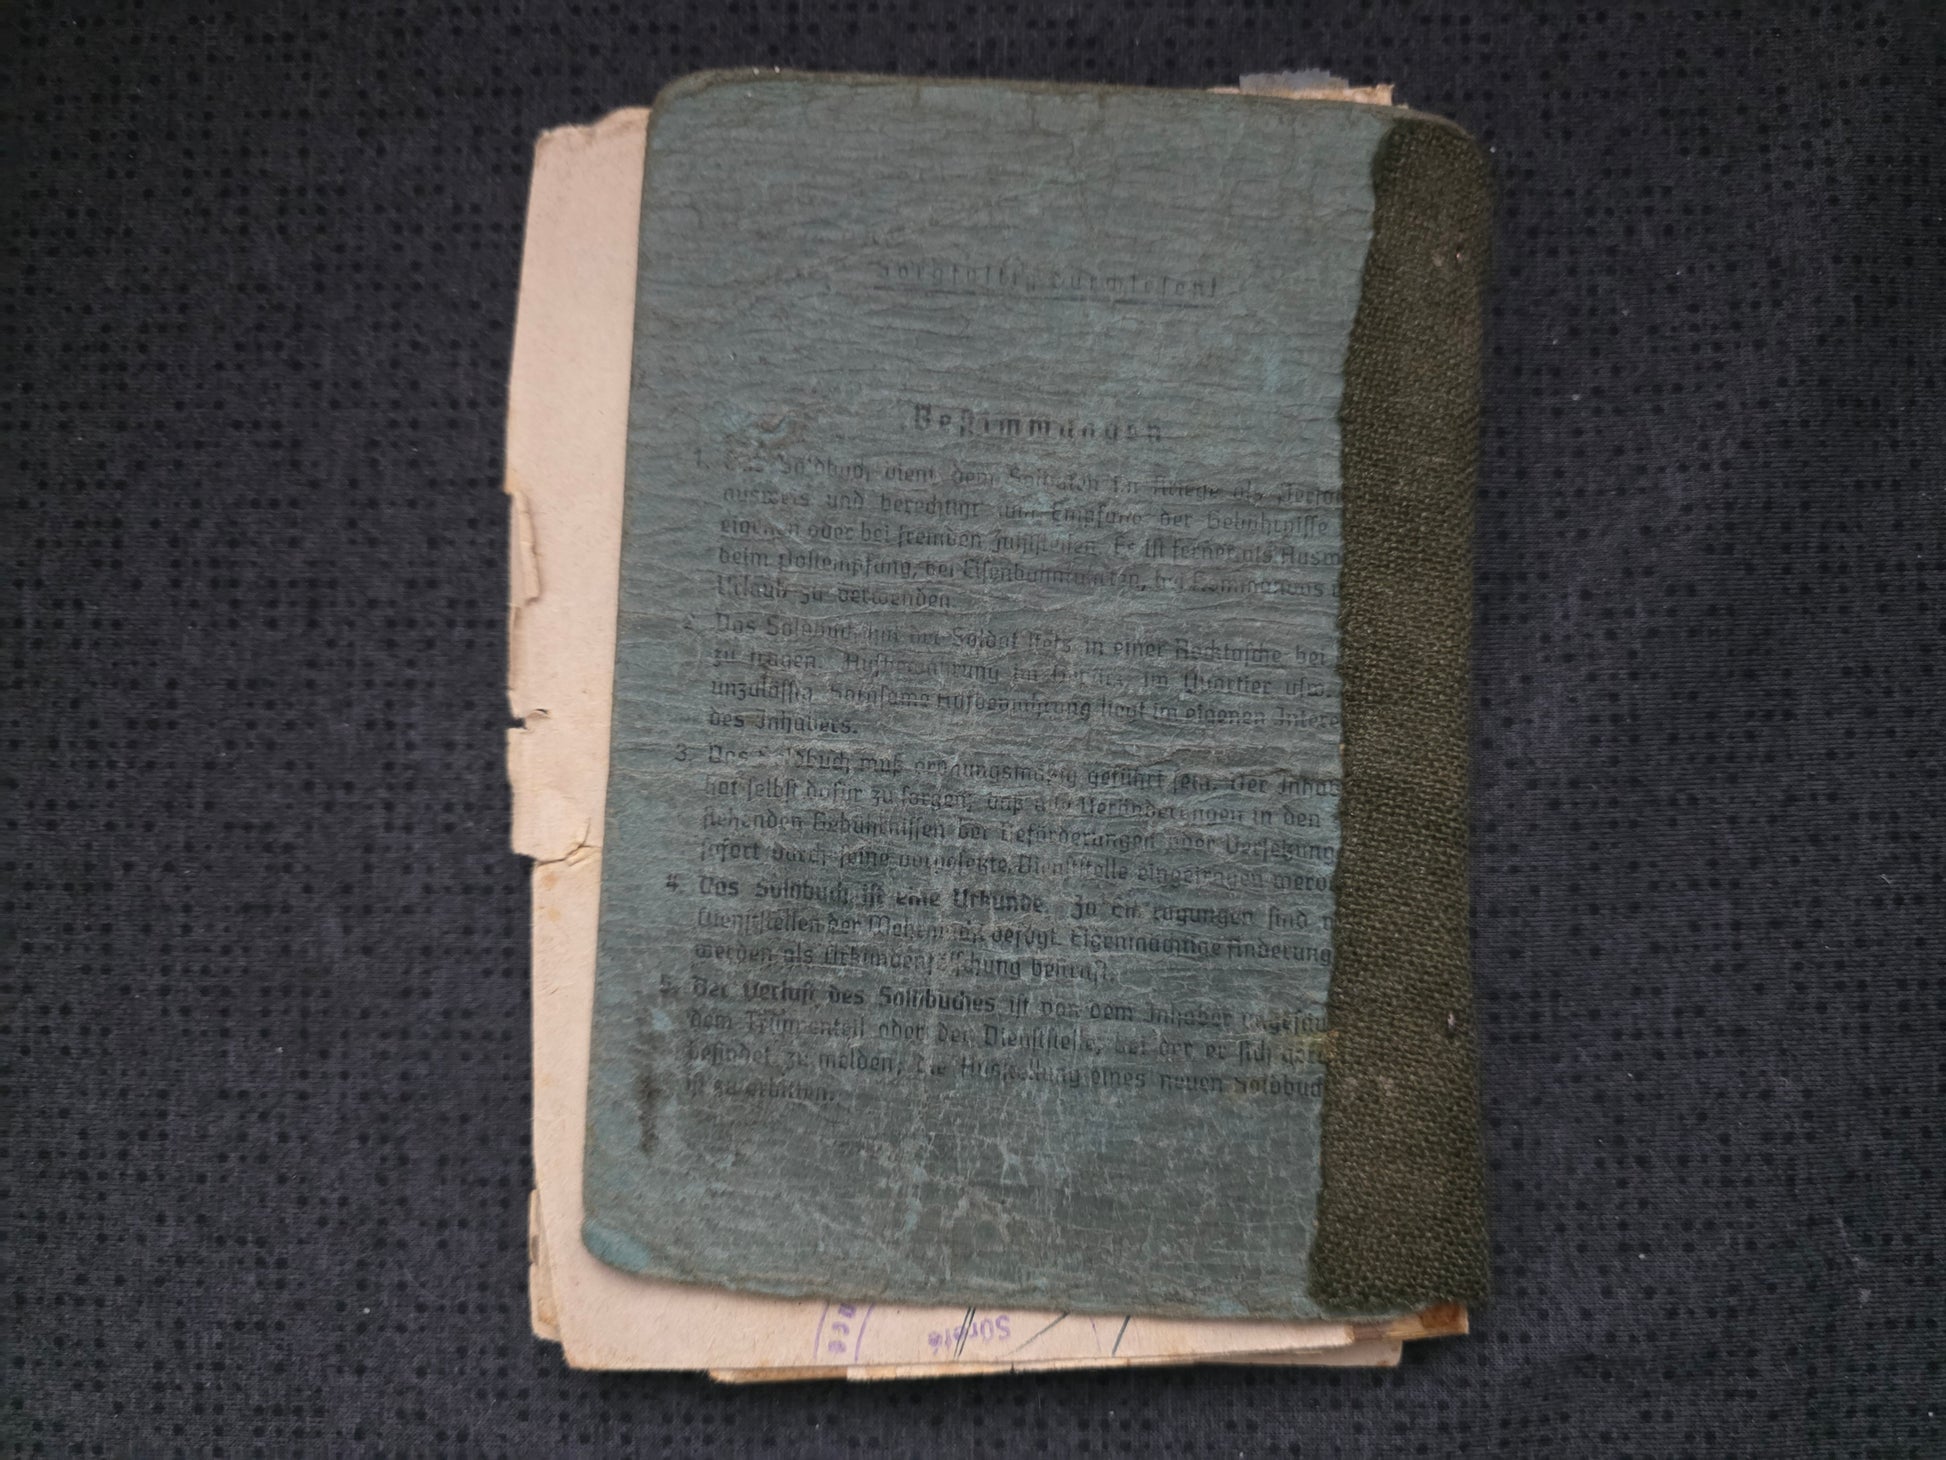 Sorgfältig durchlesen!
Bestimmungen
1. Das Soldbuch dient dem Soldaten im Kriege als Perso
ausweis und berechtigt zum Empfang der Gebührnisse
eigenen oder bei fremden Zahlstellen. Es ist ferner als Ausw
beim Postempfang, bei Eisenbahnfahrten, bei Kommandos u
Urlaub zu verwenden.
2. Das Soldbuch hat der Soldat stets in einer Rocktasche bei
zu tragen. Aufbewahrung im Gepäck, im Quartier usw.
unzulässig. Sorgsame Aufbewahrung liegt im eigenen Intere
des Inhabers.
3. Das Soldbuch muß ordnungsmäßig geführt sein. Der Inhab
hat selbst dafür zu sorgen, daß alle Veränderungen in den
stehenden Gebührnissen bei Beförderungen oder Versetzung
sofort durch seine vorgesetzte Dienststelle eingetragen werd
4. Das Soldbuch ist eine Urkunde. Zu Eintragungen sind n
Dienststellen der Wehrmacht befugt. Eigenmächtige Änderung
werden als Urkundenfälschung bestraft.
5. Der Verlust des Soldbuches ist von dem Inhaber ungesäu
dem Truppenteil oder der Dienststelle, bei der er sich gera
befindet, zu melden; die Ausstellung eines neuen Soldbuch
ist zu erbitten.
Sûreté